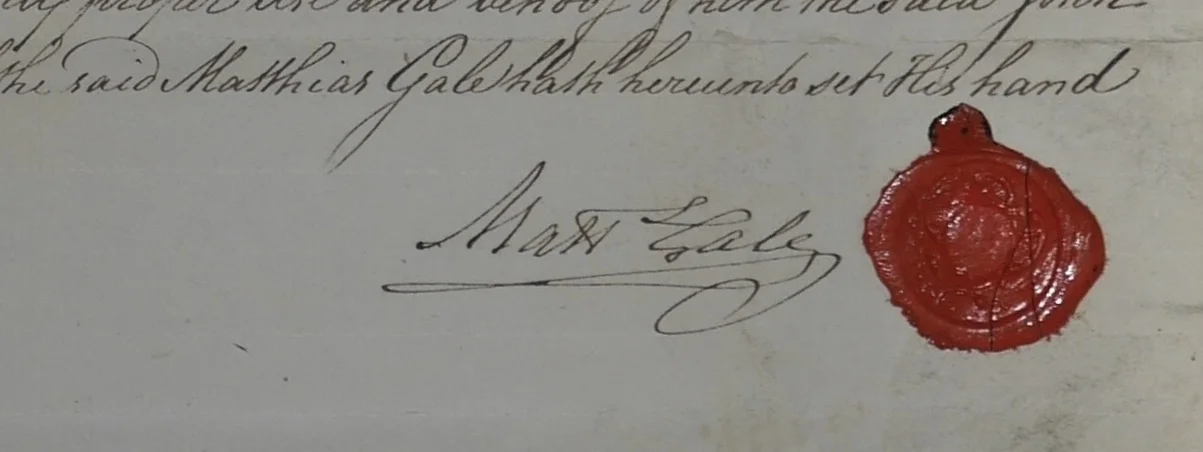 proper use and behoof of him the said John
the said Matthias Gale hath hereunto set His hand
Matt Gale